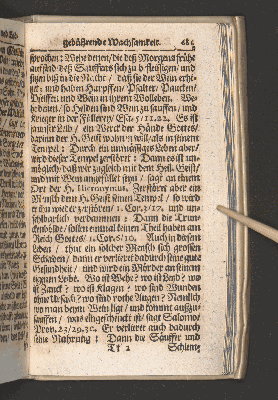 gebührende Wachsamkeit. 485
sprochen: Wehe denen/ die deß Morgens frühe
auf seind deß Sauffens sich zu fleissigen/ und
sitzen biß in die Nacht/ daß sie der Wein erhi-
tzet: und haben Harpffen/ Psalter/ Paucken/
Pfeiffen und Wein in ihrem Wolleben. We-
he denen/ so Helden sind Wein zu sauffen/ und
Krieger in der Füllerey/ Esa. 5/11.22. Es ist
unser Leib/ ein Werck der Hände Gottes/
darinn der H. Geist wohnen will/ als in seinem
Tempel: Durch ein unmässiges Leben aber/
wird dieser Tempel zerstöret: Dann es ist un-
möglich/ daß wir zugleich mit dem Heil. Geist/
und mit Wein angefüllet seyn/ sagt an einem
Ort der H. Hieronymus. Zerstöret aber ein
Mensch dem H. Geist seinen Tempel/ so wird
er ihn wieder zerstören/ 1. Cor. 3/17. und un-
fehlbarlich verdammen: Dann die Trun-
ckenbolde/ sollen einmal keinen Theil haben am
Reich Gottes/ 1. Cor. 6/10. Auch in diesem
Leben/ thut ein solcher Mensch sich grossen
Schaden/ dann er verlieret dadurch seine gute
Gesundheit/ und wird ein Mörder an seinem
eignen Leibe. Wo ist Wehe? wo ist Leyd? wo
ist Zanck? wo ist Klagen? wo sind Wunden
ohne Ursach? wo sind rothe Augen? Nemlich
wo man beym Wein ligt/ und kommt auszu-
sauffen/ was eingeschenckt ist/ sagt Salomo
Prov. 23/29.30. Er verlieret auch dadurch
seine Nahrung: Dann die Säuffer und
2 Schlem-